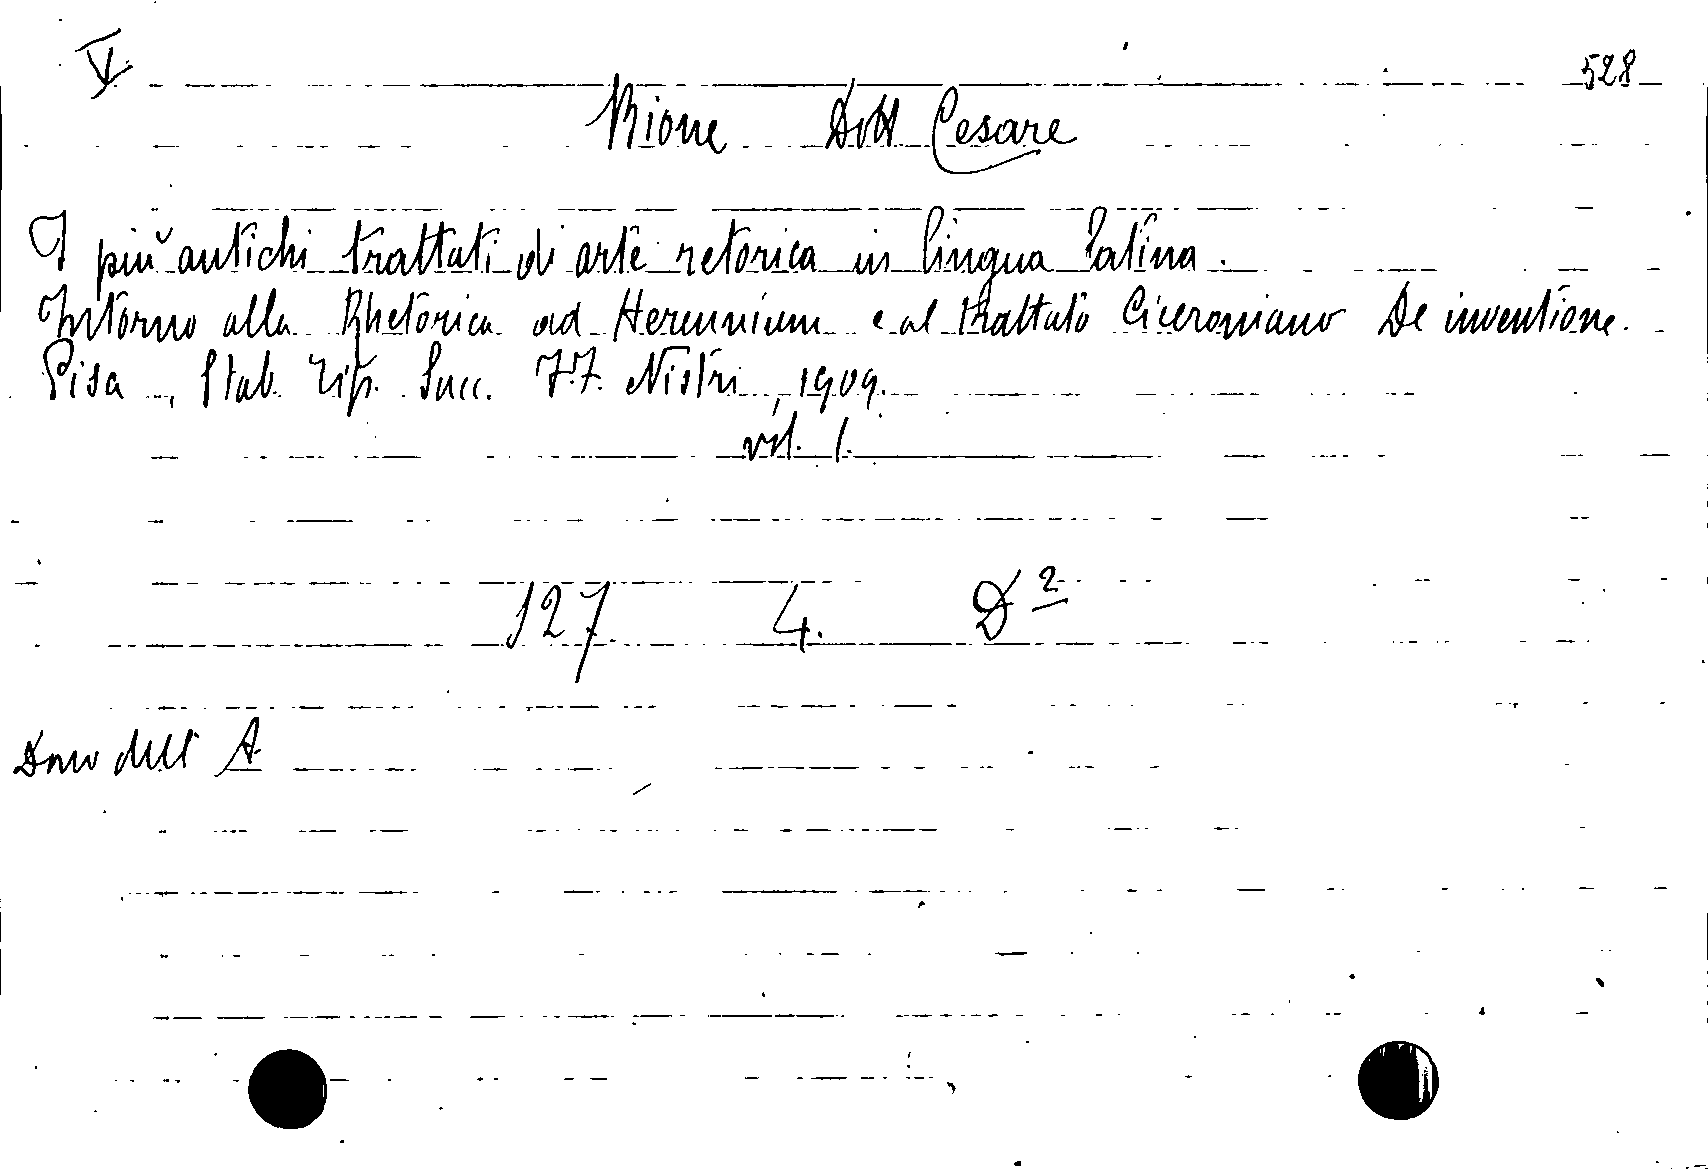 V 528
Bione Dott Cesare
I più antichi trattati di arte retorica in lingua latina.
Intorno alla Rhetorica ad Herennium e al trattato Ciceroniano De inventione.
Pisa, Stab. Tip. Succ. F.F. Nistri, 1909.
vol. 1.
127 4. D2
Dono dell' A.